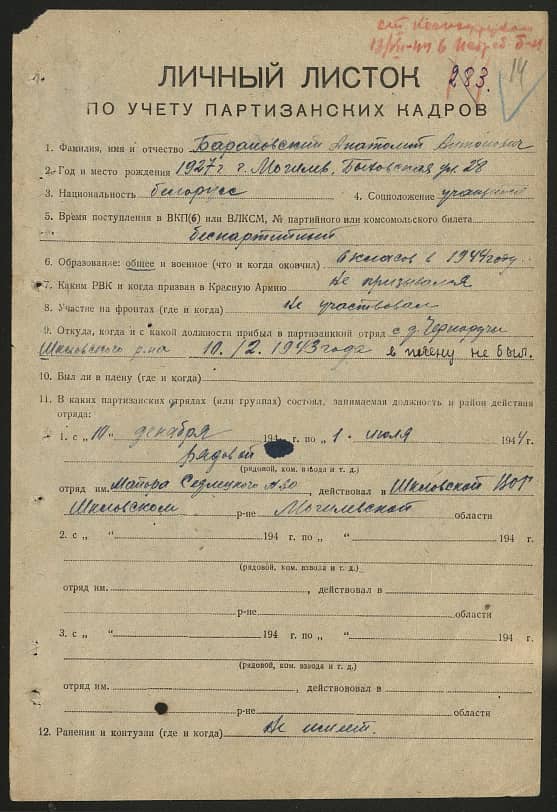 283. 14
ЛИЧНЫЙ ЛИСТОК
ПО УЧЕТУ ПАРТИЗАНСКИХ КАДРОВ
1. Фамилия, имя и отчество Барановский Анатолий Антонович
2. Год и место рождения 1927 г. г. Могилев, Быховская ул. 28
3. Национальность белорусс 4. Соцположение учащийся
5. Время поступления в ВКП(б) или ВЛКСМ, № партийного или комсомольского билета
беспартийный
6. Образование: общее и военное (что и когда окончил) 6 класов в 1944 году
7. Каким РВК и когда призван в Красную Армию Не призывался
8. Участие на фронтах (где и когда) Не участвовал
9. Откуда, когда и с какой должности прибыл в партизанский отряд с д. Черноручи
Шкловского р-на 10/12. 1943 года в плену не был.
10. Был ли в плену (где и когда)
11. В каких партизанских отрядах (или группах) состоял, занимаемая должность и район действия
отряда:
1. с „ 10 " декабря 194 г. по „ 1 " июля 1944 г.
рядовой
(рядовой, ком. взвода и т. д.)
отряд им. Майора Седлецкого , действовал в Шкловской ВОГ
Шкловском р-не Могилевской области
2. с „ " 194 г. по „ " 194 г.
(рядовой, ком. взвода и т. д.)
отряд им. , действовал в
р-не области
3. с „ " 194 г. по „ " 194 г.
(рядовой, ком. взвода и т. д.)
отряд им. , действовал в
р-не области
12. Ранения и контузии (где и когда) Не имеет.